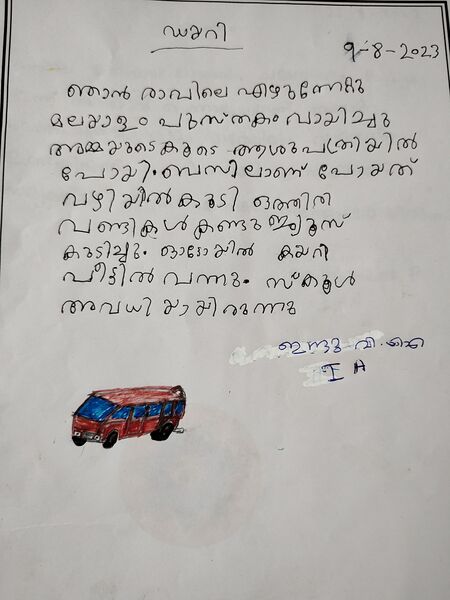 ഡയറി
9-8-2023
ഞാൻ രാവിലെ എഴുന്നേറ്റു
മലയാളം പുസ്തകം വായിച്ചു
അമ്മയുടെകൂടെ ആശുപത്രിയിൽ
പോയി. ബസിലാണ് പോയത്
വഴിയിൽകൂടി ഒത്തിരി
വണ്ടികൾകണ്ടു ജ്യൂസ്
കുടിച്ചു. ഓട്ടോയിൽ കയറി
വീട്ടിൽ വന്നു. സ്കൂൾ
അവധിയായിരുന്നു
ഇന്ദു വി.
I A